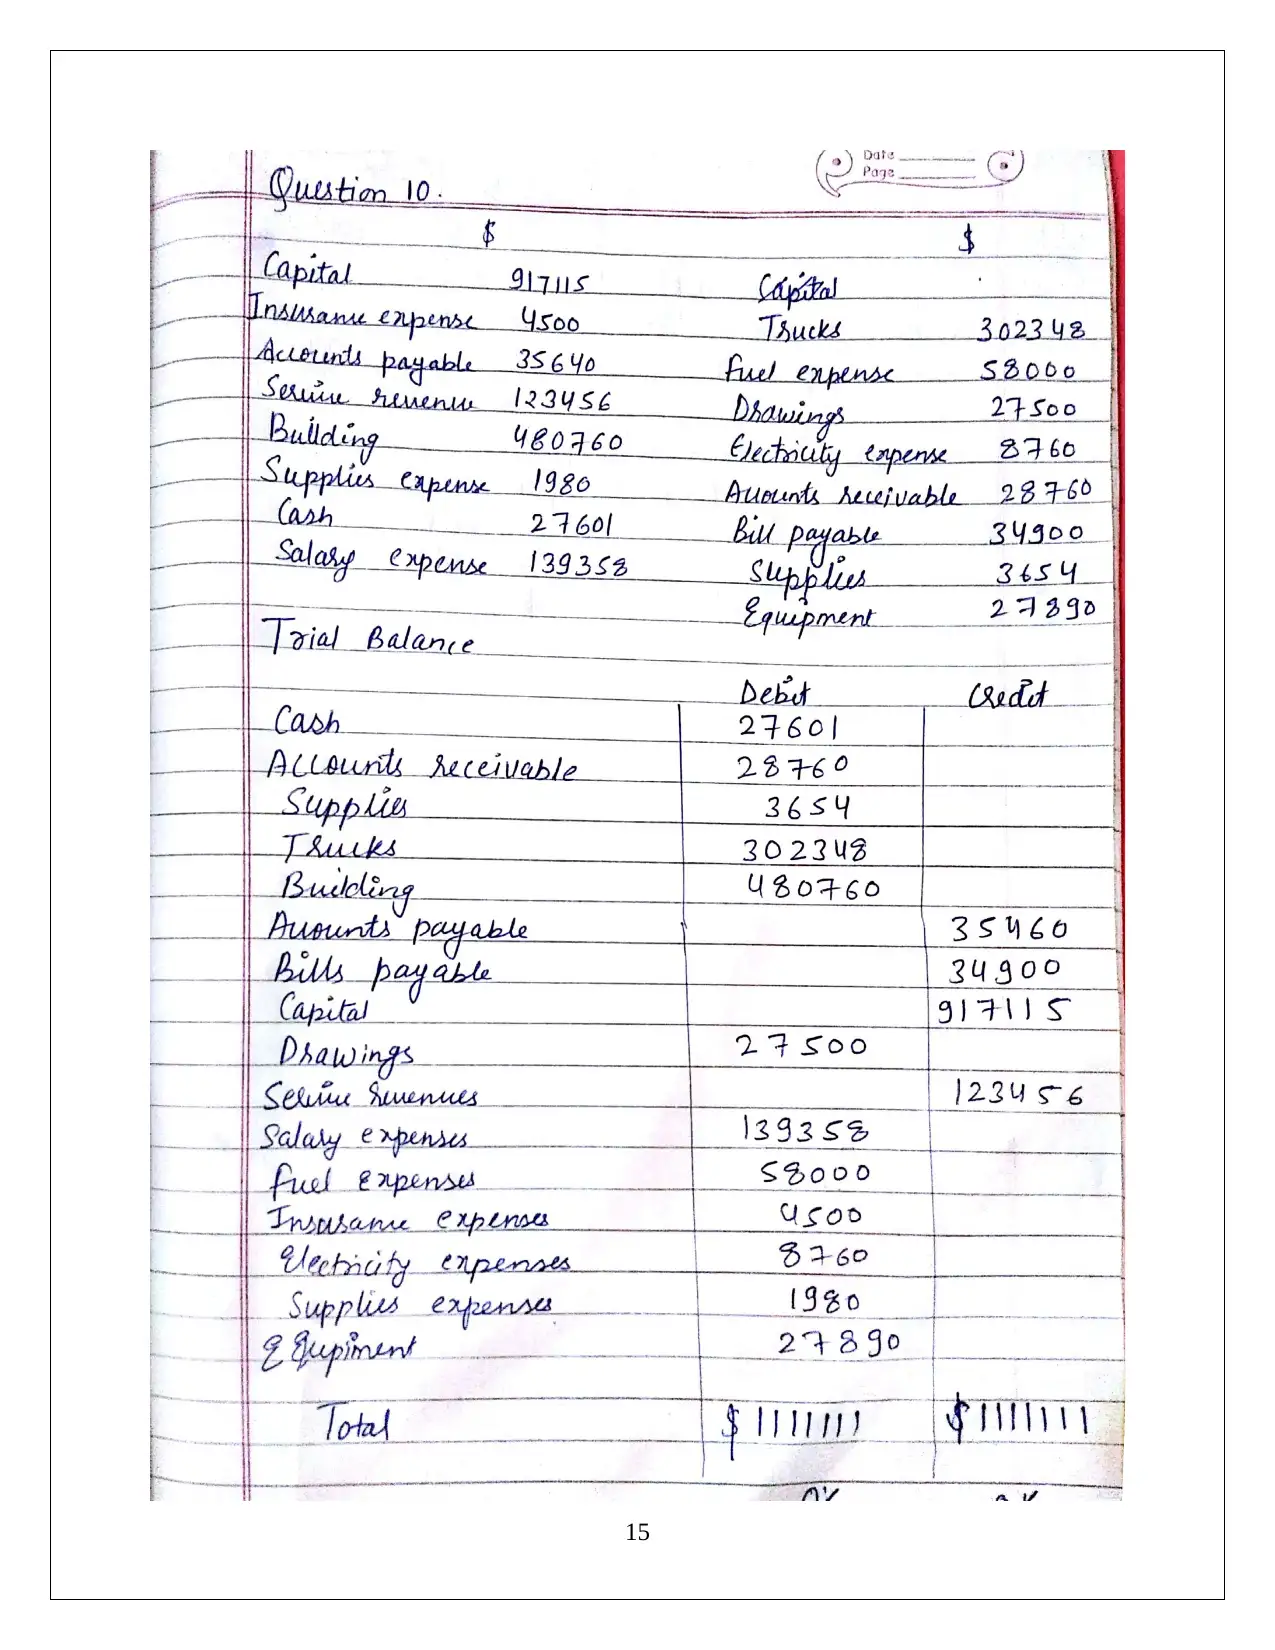 Date
Page
Question 10.
$ $
Capital 917115 Capital
Insurance expense 4500 Trucks 302348
Accounts payable 35640 Fuel expense 58000
Service revenue 123456 Drawings 27500
Building 480760 Electricity expense 8760
Supplies expense 1980 Accounts receivable 28760
Cash 27601 Bill payable 34900
Salary expense 139358 Supplies 3654
Equipment 27890
Trial Balance
Debit Credit
Cash 27601
Accounts receivable 28760
Supplies 3654
Trucks 302348
Building 480760
Accounts payable 35460
Bills payable 34900
Capital 917115
Drawings 27500
Service revenues 123456
Salary expenses 139358
Fuel expenses 58000
Insurance expenses 4500
Electricity expenses 8760
Supplies expenses 1980
Equipment 27890
Total $1111111 $1111111
15